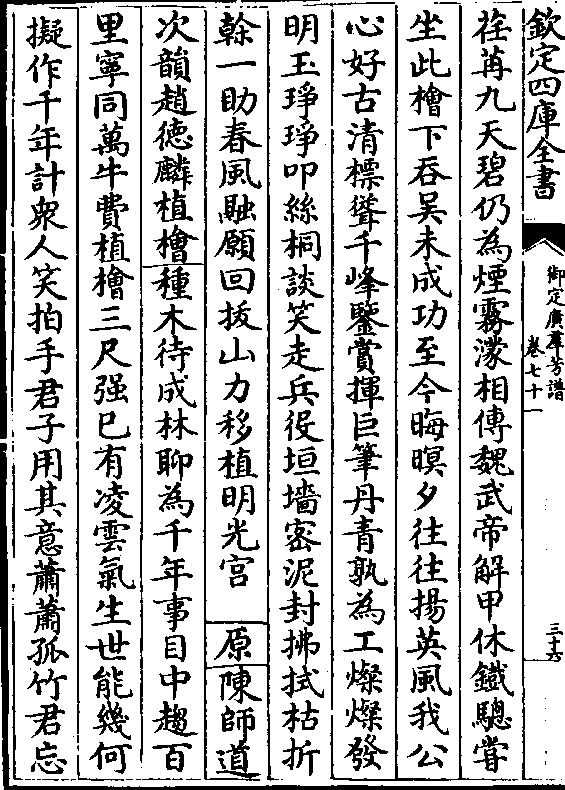 欽定四庫全書
御定廣羣芳譜
卷七十一
三十六
荏苒九天碧仍為煙霧濛相傳魏武帝解甲休鐵驄嘗
坐此檜下吞吴未成功至今晦暝夕往往揚英風我公
心好古清標聳千峰鑒賞揮巨筆丹青孰為工燦燦發
明玉琤琤叩絲桐談笑走兵役垣墻密泥封拂拭枯折
榦一助春風融願回拔山力移植明光宮 原陳師道
次韻趙德麟植檜種木待成林聊為千年事目中趨百
里寧同萬牛費植檜三尺强已有凌雲氣生世能幾何
擬作千年計衆人笑拍手君子用其意蕭蕭孤竹君忘